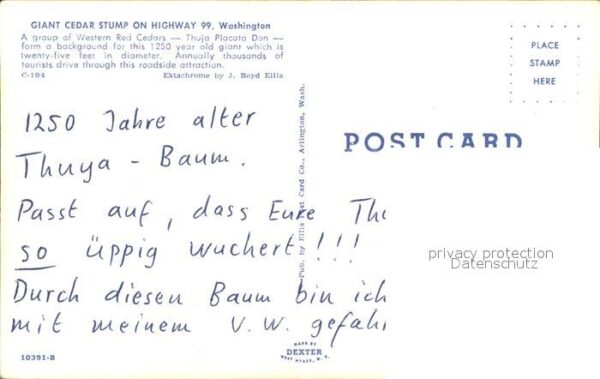 GIANT CEDAR STUMP ON HIGHWAY 99, Washington
A group of Western Red Cedars — Thuja Placata Don —
form a background for this 1250 year old giant which is
twenty-five feet in diameter. Annually thousands of
tourists drive through this roadside attraction.
C-194 Ektachrome by J. Boyd Ellis
PLACE
STAMP
HERE
POST CARD
1250 Jahre alter
Thuya - Baum.
Passt auf, dass Eure
so üppig wuchert!!!
Durch diesen Baum bin ich
mit meinem V.W.
Pub. by Ellis Post Card Co., Arlington, Wash.
privacy protection
Datenschutz
MADE BY
DEXTER
WEST NYACK, N. Y.
10391-B